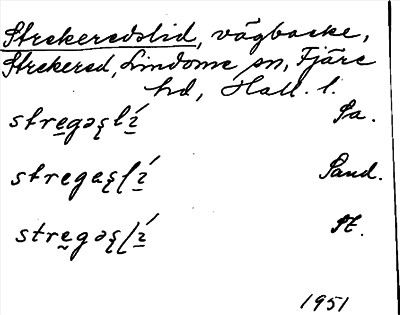 Strekeredslid, vägbacke,
Strekered, Lindome sn, Fjäre
hd, Hall. l.
stre̲gəʂlí̲ Sa.
stregaʂɭí̲ Sand.
strḛgəʂɭí̲ St.
1951